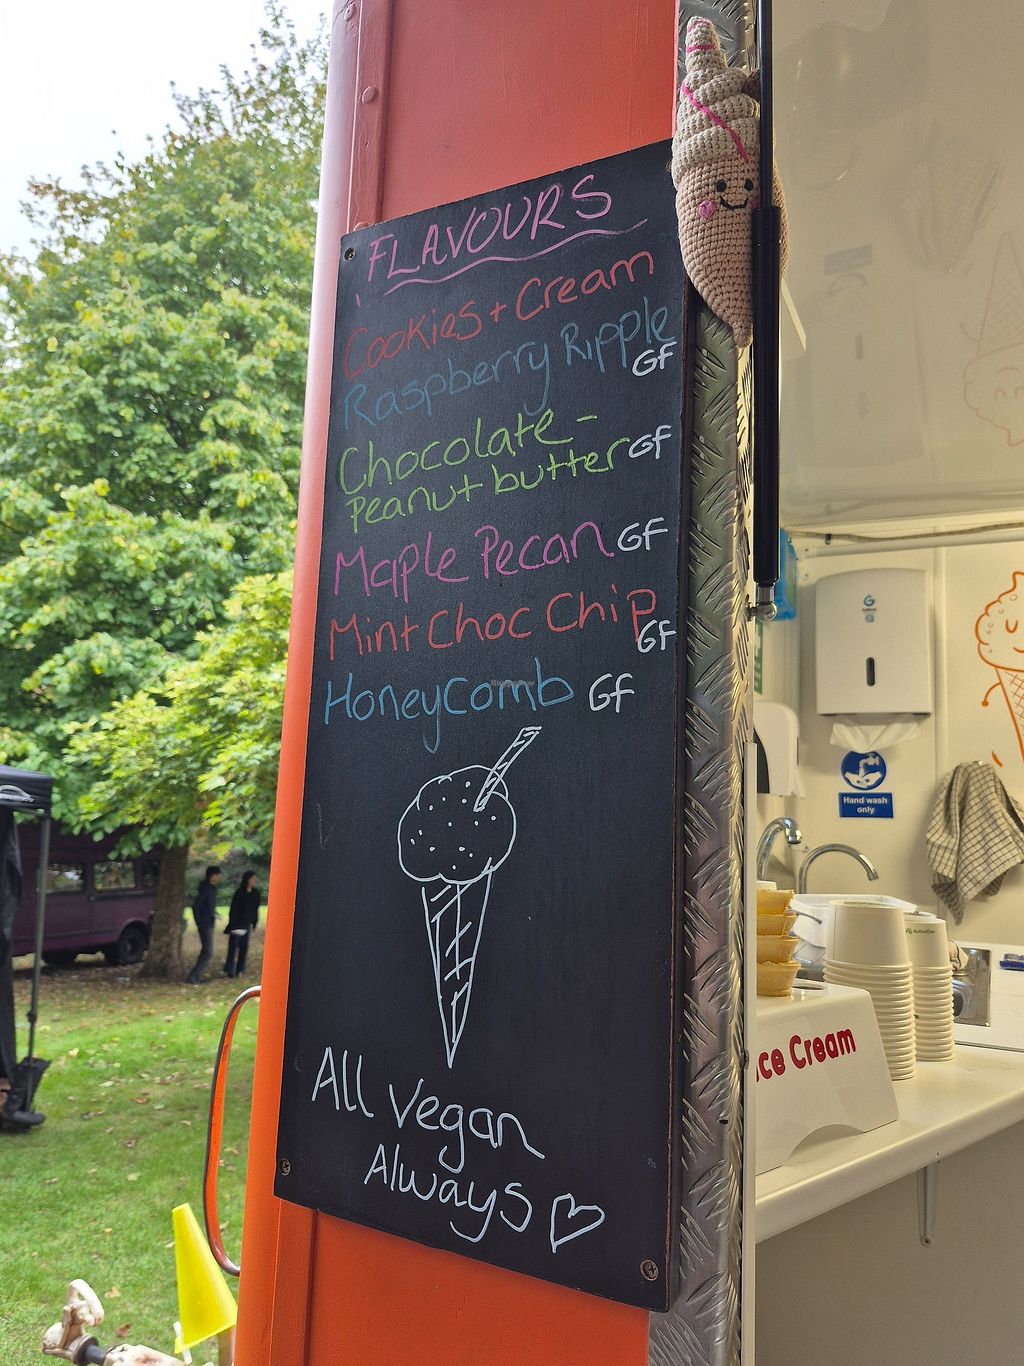 FLAVOURS
Cookies + Cream
Raspberry Ripple
GF
Chocolate -
Peanut butter GF
Maple Pecan GF
Mint Choc Chip
GF
Honeycomb GF
All Vegan
Always
Hand wash
only
Ice Cream